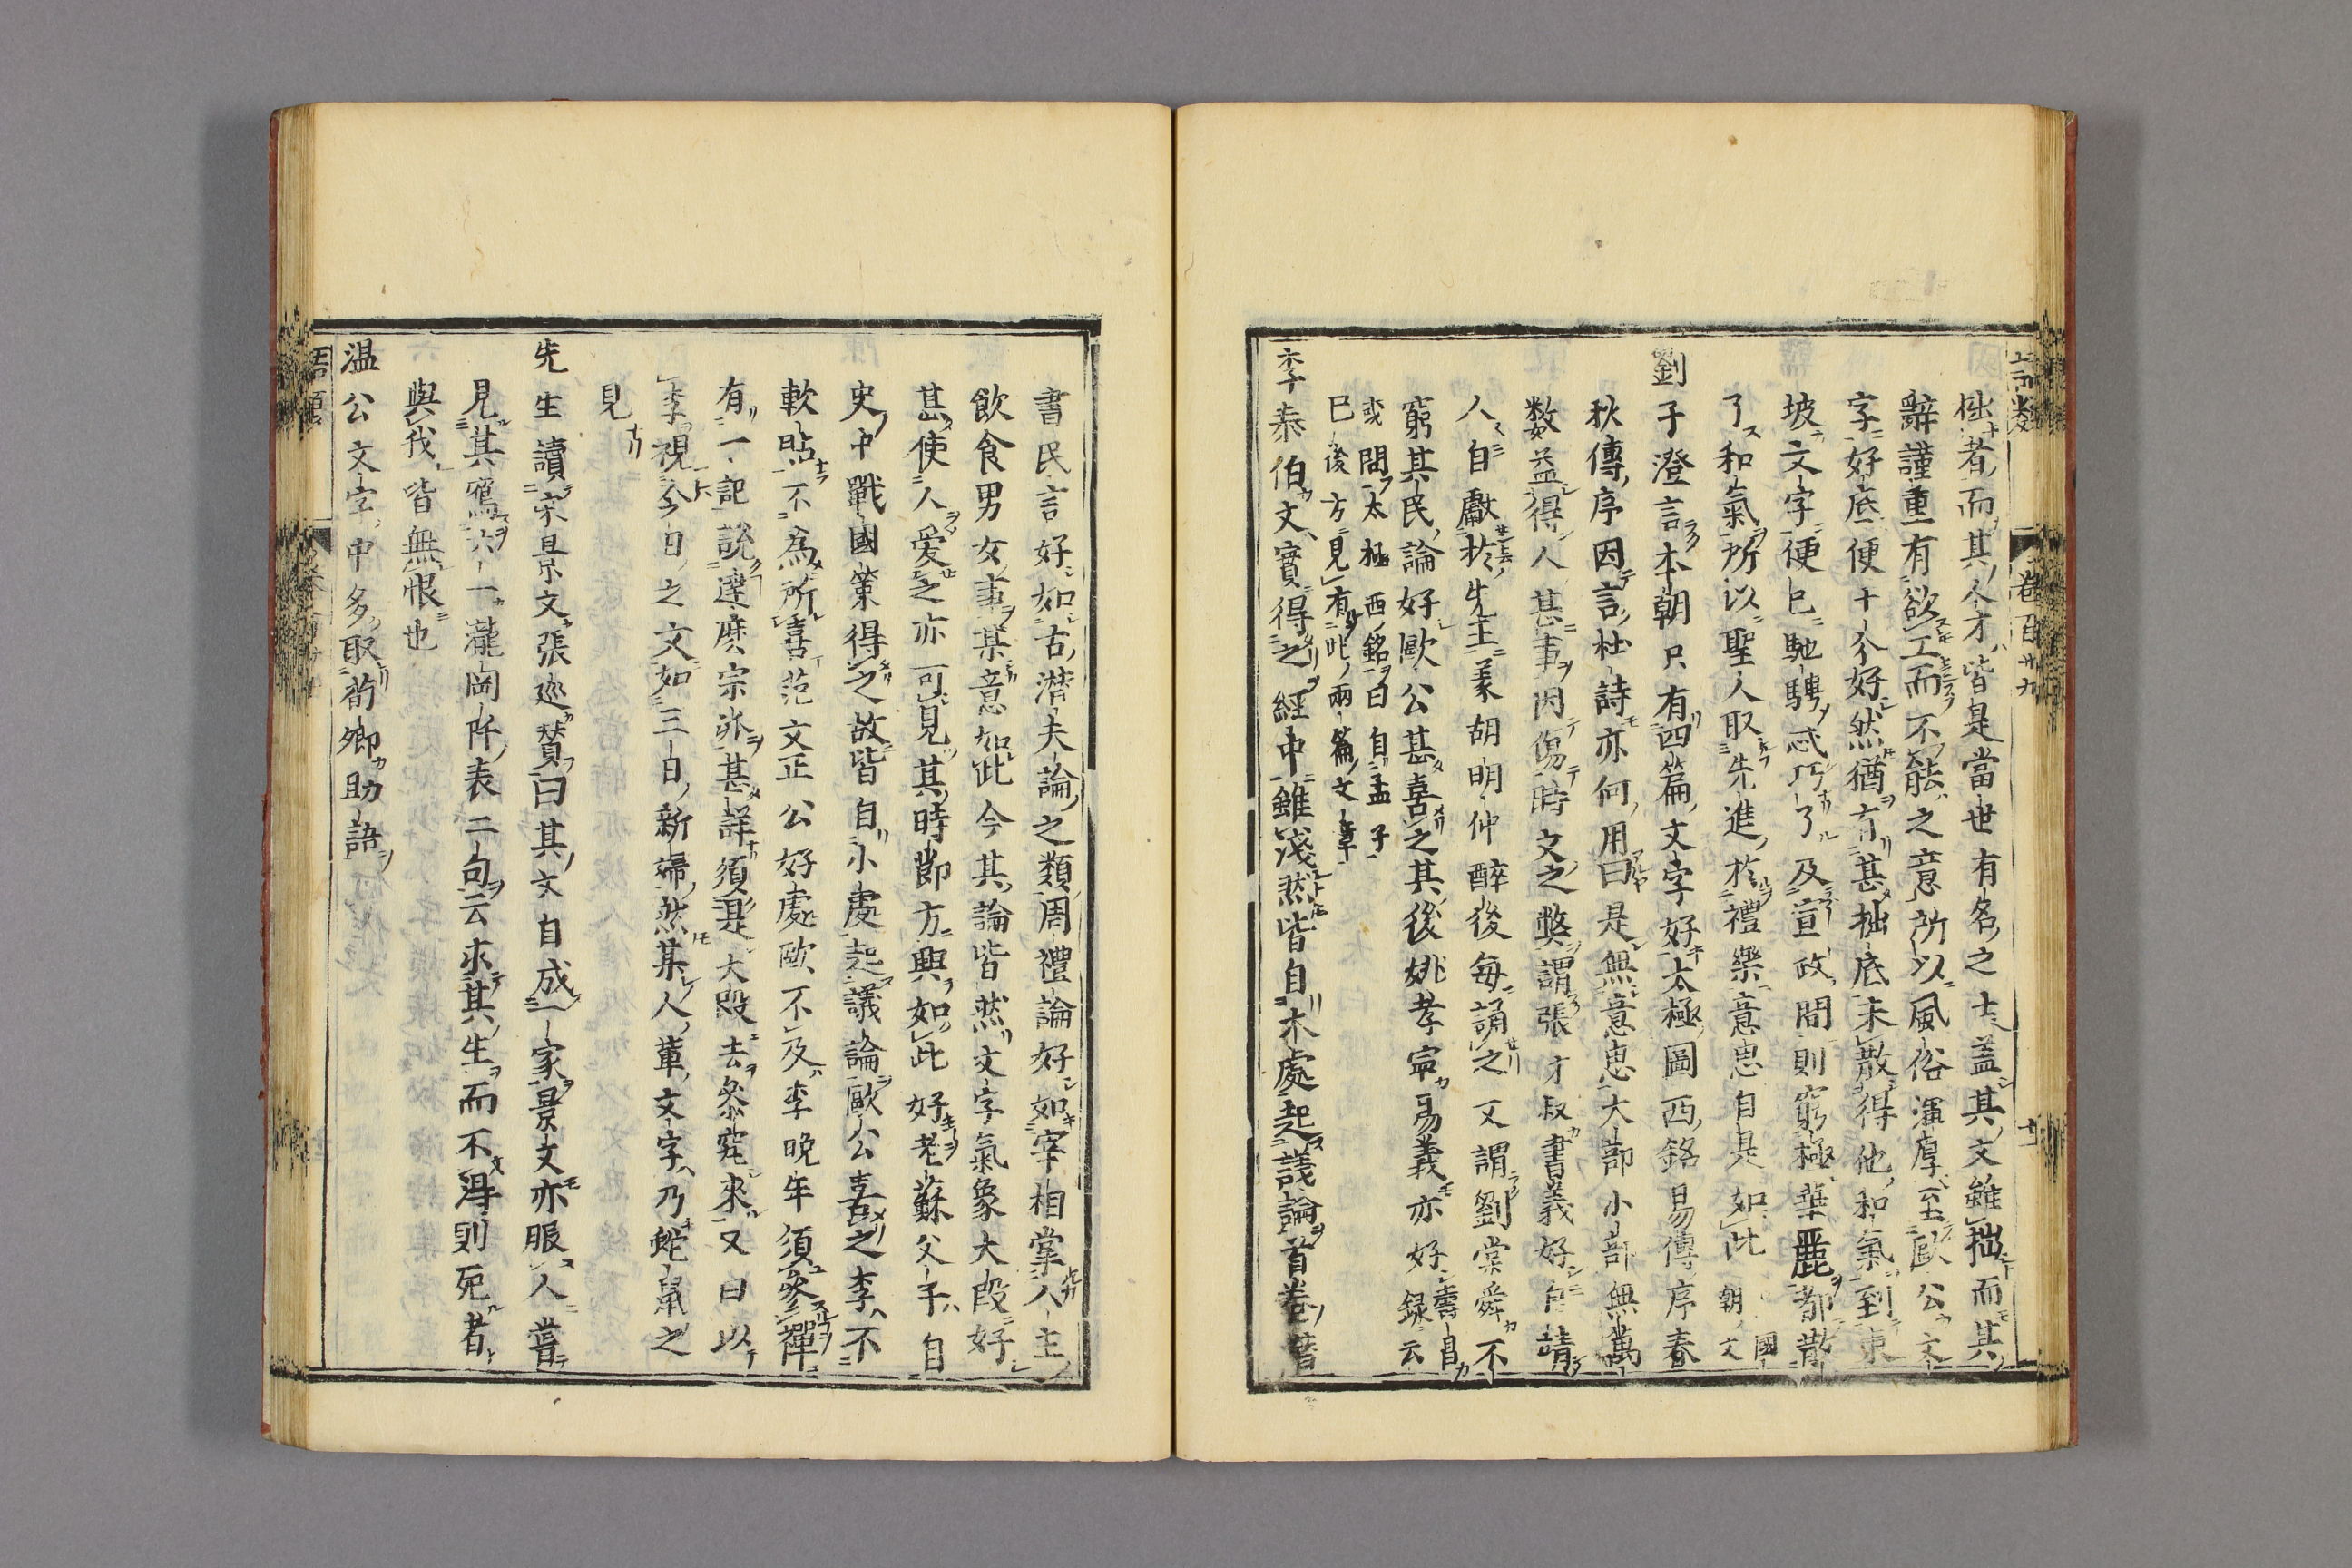 卷百廿九
拙者而其人才皆是當世有名之士蓋其文雖拙而其
辭謹重有欲工而不能之意所以風俗渾厚至歐公文
字好底便十分好然猶有甚拙底未散得他和氣到東
坡文字便已馳騁忒巧了及宣政間則窮極華麗都散
了和氣所以聖人取先進於禮樂意思自是如此 國朝文
劉子澄言本朝只有四篇文字好太極圖西銘易傳序春
秋傳序因言杜詩亦何用曰是無意思大部小部無萬
數益得人甚事因傷時文之弊謂張才叔書義好自靖
人自獻於先王義胡明仲醉後每誦之又謂劉棠舜不
窮其民論好歐公甚喜之其後姚孝寧易義亦好 壽昌錄云
或問太極西銘曰自孟子
已後方見有此兩篇文章
李泰伯文實得之經中雖淺然皆自大處起議論首卷潛
書民言好如古潛夫論之類周禮論好如宰相掌人主
飲食男女事某意如此今其論皆然文字氣象大段好
甚使人愛之亦可見其時節方興如此好老蘇父子自
史中戰國策得之故皆自小處起議論歐公喜之李不
軟貼不為所喜范文正公好處歐不及李晚年須參禪
有一記說達磨宗派甚詳須是大段去參究來又曰以
李視今日之文如三日新婦然某人輩文字乃蛇鼠之
見
先生讀宋景文張巡贊曰其文自成一家景文亦服人嘗
見其寫六一瀧岡阡表二句云求其生而不得則死者
與我皆無恨也
温公文字中多取荀卿助語
語類